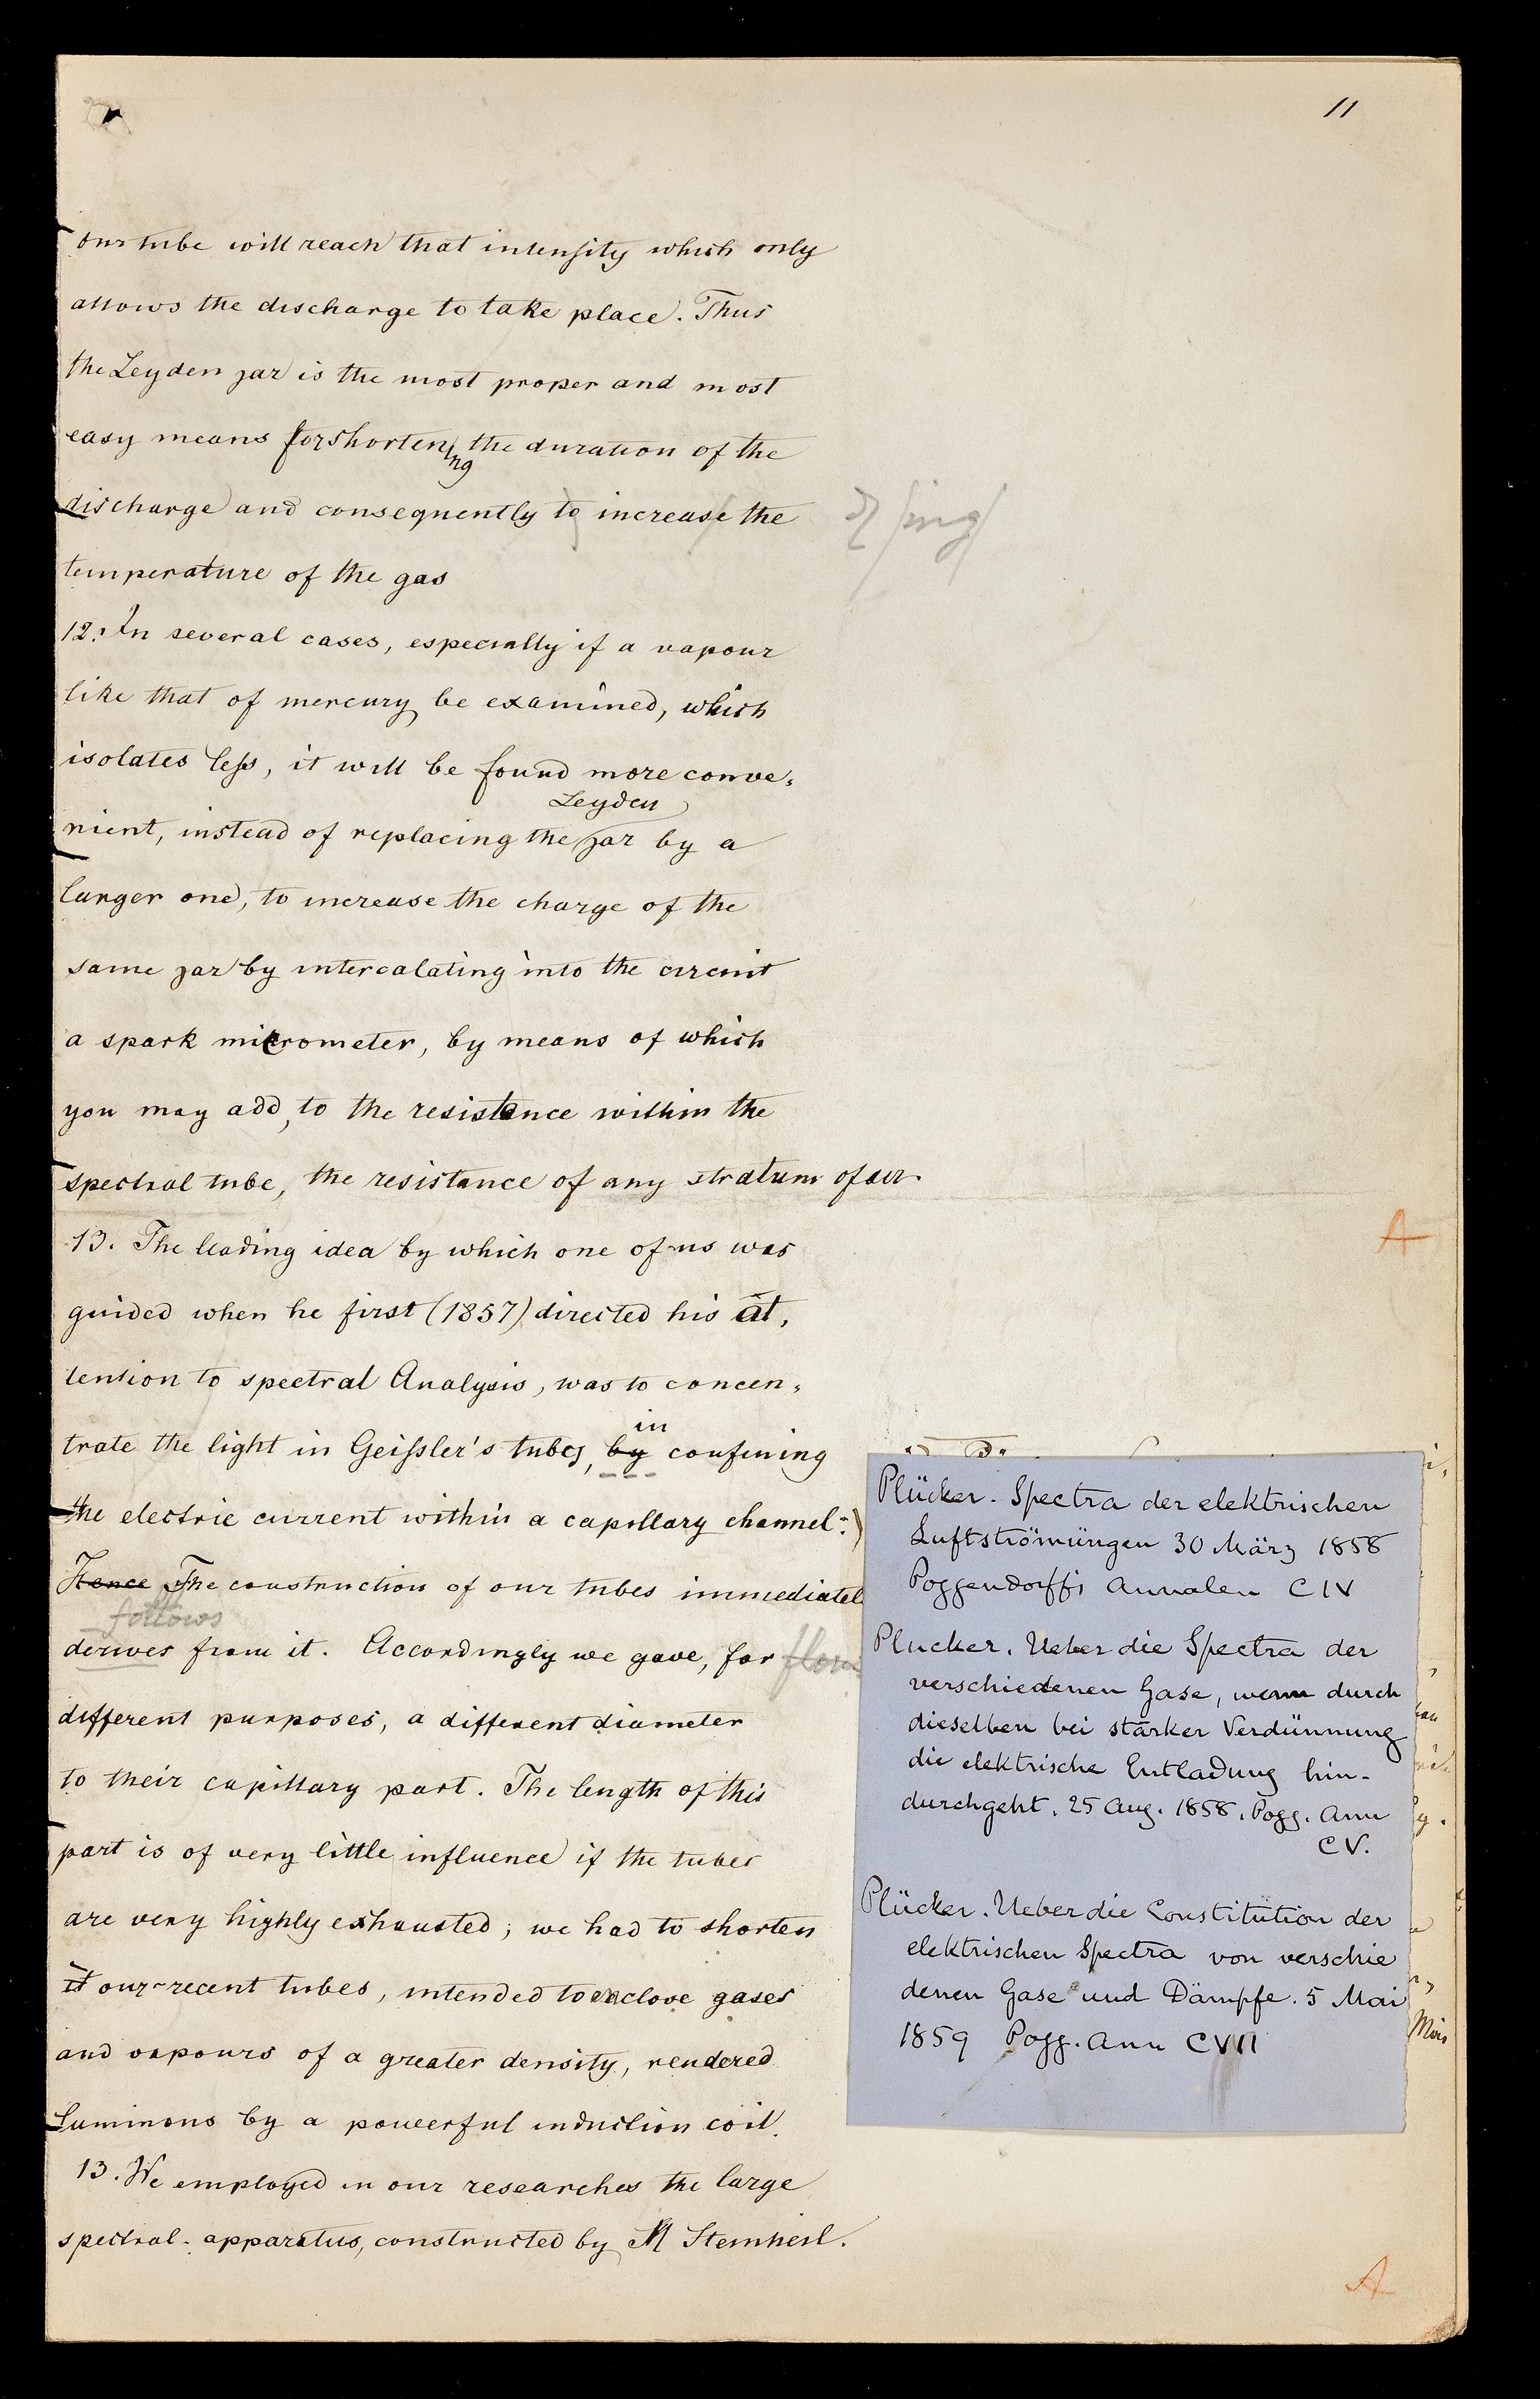 11
our tube will reach that intensity which only
allows the discharge to take place. Thus
the Leyden jar is the most proper and most
easy means for shortening the duration of the
discharge and consequently to increase the
ing
temperature of the gas
12. In several cases, especially if a vapour
like that of mercury be examined, which
isolates less, it will be found more conve-
Leyden
nient, instead of replacing the jar by a
larger one, to increase the charge of the
same jar by intercalating into the circuit
a spark micrometer, by means of which
you may add, to the resistance within the
spectral tube, the resistance of any stratum of air.
A
13. The leading idea by which one of us was
guided when he first (1857) directed his at-
tention to spectral Analysis, was to concen-
in
trate the light in Geissler's tubes, by confining
the electric current within a capillary channel:
Hence The construction of our tubes immediatel
follows
derives from it. Accordingly we gave, for
different purposes, a different diameter
to their capillary part. The length of this
part is of very little influence if the tubes
are very highly exhausted; we had to shorten
it our recent tubes, intended to enclose gases
and vapours of a greater density, rendered
luminous by a powerful induction coil.
13. We employed in our researches the large
spectral-apparatus, constructed by M Steinheil.
A
Plücker. Spectra der elektrischen
Luftströmüngen 30 März 1858
Poggendorffs Annalen CIV
Plucker. Ueber die Spectra der
verschiedenen Gase, wenn durch
dieselben bei starker Verdünnung
die elektrische Entladung hin-
durchgeht. 25 Aug. 1858. Pogg. Ann
CV.
Plücker. Ueber die Constitütion der
elektrischen Spectra von verschie
denen Gase und Dämpfe. 5 Mai
1859 Pogg. Ann CVII